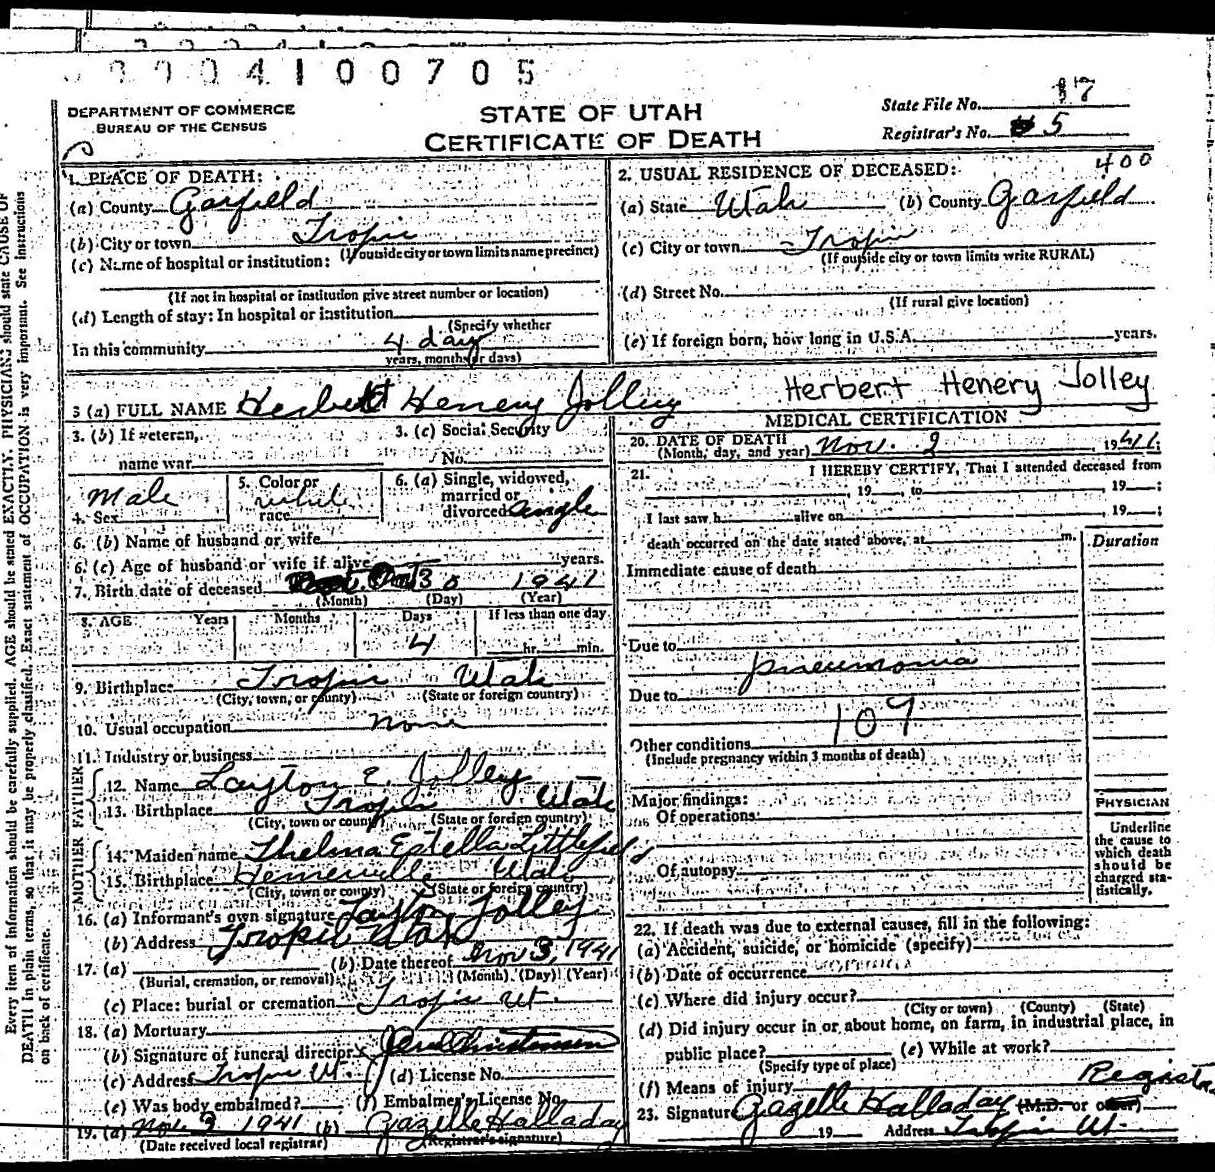 0 0 0 4 1 0 0 7 0 5
DEPARTMENT OF COMMERCE
BUREAU OF THE CENSUS
STATE OF UTAH
CERTIFICATE OF DEATH
State File No. 17
Registrar's No. 5
400
1. PLACE OF DEATH:
(a) County Garfield
(b) City or town Tropic
(If outside city or town limits name precinct)
(c) Name of hospital or institution:
(If not in hospital or institution give street number or location)
(d) Length of stay: In hospital or institution
(Specify whether
In this community 4 day
years, months or days)
2. USUAL RESIDENCE OF DECEASED:
(a) State Utah (b) County Garfield
(c) City or town Tropic
(If outside city or town limits write RURAL)
(d) Street No.
(If rural give location)
(e) If foreign born, how long in U.S.A. years.
3 (a) FULL NAME Herbert Henery Jolley
Herbert Henery Jolley
3. (b) If veteran, 3. (c) Social Security
name war No.
4. Sex Male
5. Color or race white
6. (a) Single, widowed, married or divorced single
6. (b) Name of husband or wife
6. (c) Age of husband or wife if alive years.
7. Birth date of deceased Oct 30 1941
(Month) (Day) (Year)
8. AGE Years Months Days If less than one day
4 hr. min.
9. Birthplace Tropic Utah
(City, town, or county) (State or foreign country)
10. Usual occupation none
11. Industry or business
FATHER
12. Name Layton E. Jolley
13. Birthplace Tropic Utah
(City, town or county) (State or foreign country)
MOTHER
14. Maiden name Thelma Estella Littlefield
15. Birthplace Henrieville Utah
(City, town or county) (State or foreign country)
16. (a) Informant's own signature Layton Jolley
(b) Address Tropic Utah
17. (a) (b) Date thereof Nov 3, 1941
(Burial, cremation, or removal) (Month) (Day) (Year)
(c) Place: burial or cremation Tropic Ut.
18. (a) Mortuary
(b) Signature of funeral director
(c) Address Tropic Ut. (d) License No.
(e) Was body embalmed? (f) Embalmer's License No.
19. (a) Nov 3 1941 (b) Gazelle Halladay
(Date received local registrar) (Registrar's signature)
MEDICAL CERTIFICATION
20. DATE OF DEATH Nov. 2 1941
(Month, day, and year)
21. I HEREBY CERTIFY, That I attended deceased from
, 19 , to , 19 ;
I last saw h alive on , 19 ;
death occurred on the date stated above, at m.
Duration
Immediate cause of death
Due to
pneumonia
Due to
109
Other conditions
(Include pregnancy within 3 months of death)
Major findings:
Of operations
Of autopsy
PHYSICIAN
Underline
the cause to
which death
should be
charged sta-
tistically.
22. If death was due to external causes, fill in the following:
(a) Accident, suicide, or homicide (specify)
(b) Date of occurrence
(c) Where did injury occur?
(City or town) (County) (State)
(d) Did injury occur in or about home, on farm, in industrial place, in
public place? (e) While at work?
(Specify type of place)
(f) Means of injury
23. Signature Gazelle Halladay (M.D. or other)
19 Address Tropic Ut.
Every item of information should be carefully supplied. AGE should be stated EXACTLY. PHYSICIANS should state CAUSE OF
DEATH in plain terms, so that it may be properly classified. Exact statement of OCCUPATION is very important. See instructions
on back of certificate.